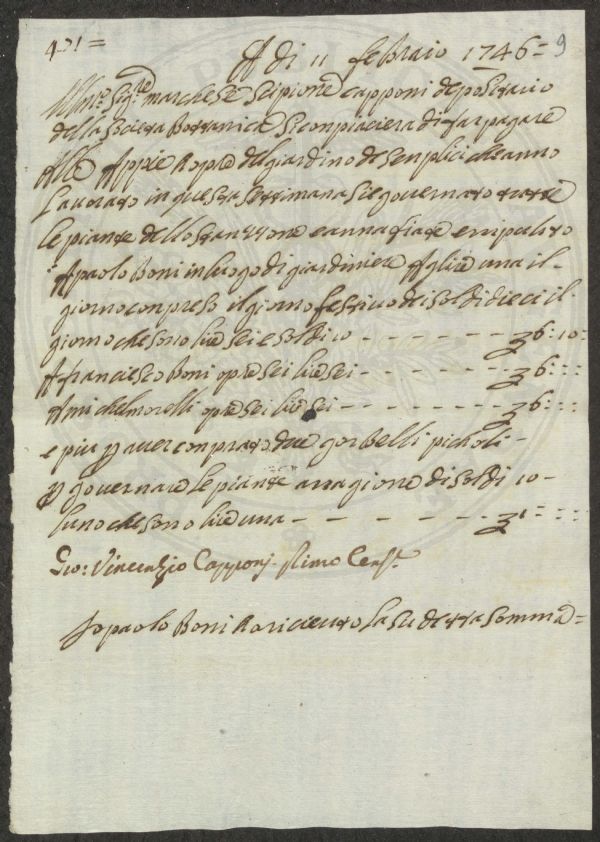 471= A di 11 febraio 1746= 9
Illmo. Sigre. marchese Scipione Capponi depositario
della Societa Bottanica Si conpiacera di far pagare
Alle Appie Ropre del giardino de Senplici che anno
Lavorato in questa Settimana Sie governato tutte
le piante dello Stanzzone e annafiate e ripulito
A paolo Boni in luogo di giardiniere A lire una il
giorno conpreso il giorno festivo dei soldi dieci il
giorno che sono lire sei e soldi 10 - - - - - - - - 6:10:
A franciesco Boni opre sei lire sei - - - - - - - 6:::
A michel morelli opre sei lire sei - - - - - - - 6:::
e piu p aver conprato due gorbelli picholi -
p governare le piante arragione di soldi 10 -
luno che sono lire una - - - - - - - - 1:::
Gio: Vincenzio Capponj Primo Cens.
Io paolo Boni o ricieuto la su detta Somma=